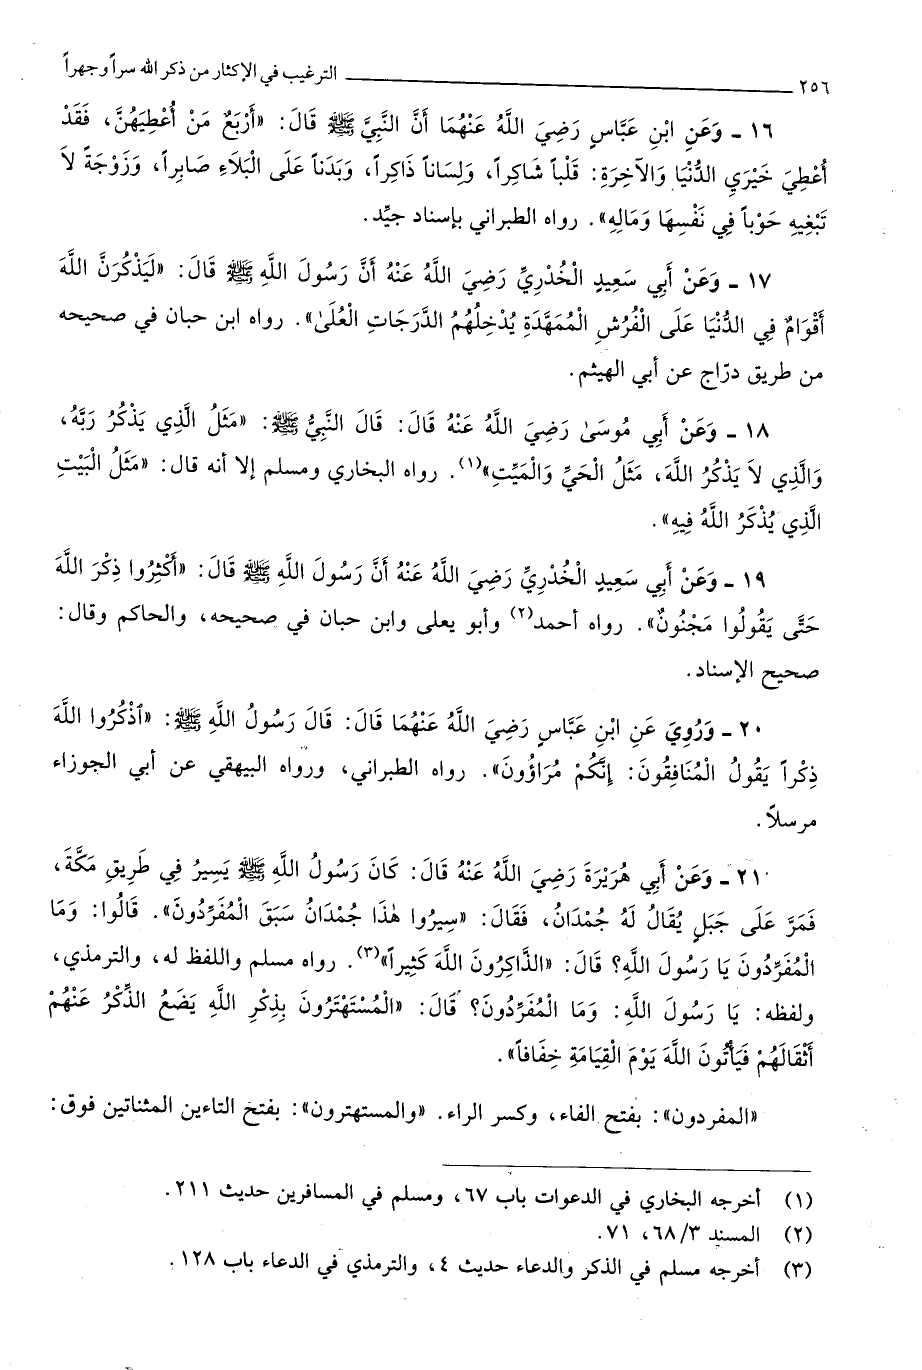 ٢٥٦ الترغيب في الإكثار من ذكر الله سراً وجهراً
١٦ ـ وَعَنِ ابْنِ عَبَّاسٍ رَضِيَ اللَّهُ عَنْهُمَا أَنَّ النَّبِيَّ ﷺ قَالَ: «أَرْبَعٌ مَنْ أُعْطِيَهُنَّ، فَقَدْ
أُعْطِيَ خَيْرَيِ الدُّنْيَا وَالآخِرَةِ: قَلْباً شَاكِراً، وَلِسَاناً ذَاكِراً، وَبَدَناً عَلَى الْبَلاَءِ صَابِراً، وَزَوْجَةً لاَ
تَبْغِيهِ حَوْباً فِي نَفْسِهَا وَمَالِهِ». رواه الطبراني بإسناد جيِّد.
١٧ ـ وَعَنْ أَبِي سَعِيدٍ الْخُدْرِيِّ رَضِيَ اللَّهُ عَنْهُ أَنَّ رَسُولَ اللَّهِ ﷺ قَالَ: «لَيَذْكُرَنَّ اللَّهَ
أَقْوَامٌ فِي الدُّنْيَا عَلَى الْفُرُشِ الْمُمَهَّدَةِ يُدْخِلُهُمُ الدَّرَجَاتِ الْعُلَىٰ». رواه ابن حبان في صحيحه
من طريق درّاج عن أبي الهيثم.
١٨ ـ وَعَنْ أَبِي مُوسَىٰ رَضِيَ اللَّهُ عَنْهُ قَالَ: قَالَ النَّبِيُّ ﷺ: «مَثَلُ الَّذِي يَذْكُرُ رَبَّهُ،
وَالَّذِي لاَ يَذْكُرُ اللَّهَ، مَثَلُ الْحَيِّ وَالْمَيِّتِ»(١). رواه البخاري ومسلم إلا أنه قال: «مَثَلُ الْبَيْتِ
الَّذِي يُذْكَرُ اللَّهُ فِيهِ».
١٩ ـ وَعَنْ أَبِي سَعِيدٍ الْخُدْرِيِّ رَضِيَ اللَّهُ عَنْهُ أَنَّ رَسُولَ اللَّهِ ﷺ قَالَ: «أَكْثِرُوا ذِكْرَ اللَّهَ
حَتَّى يَقُولُوا مَجْنُونٌ». رواه أحمد(٢) وأبو يعلى وابن حبان في صحيحه، والحاكم وقال:
صحيح الإسناد.
٢٠ ـ وَرُوِيَ عَنِ ابْنِ عَبَّاسٍ رَضِيَ اللَّهُ عَنْهُمَا قَالَ: قَالَ رَسُولُ اللَّهِ ﷺ: «اذْكُرُوا اللَّهَ
ذِكْراً يَقُولُ الْمُنَافِقُونَ: إِنَّكُمْ مُرَاؤُونَ». رواه الطبراني، ورواه البيهقي عن أبي الجوزاء
مرسلاً.
٢١ ـ وَعَنْ أَبِي هُرَيْرَةَ رَضِيَ اللَّهُ عَنْهُ قَالَ: كَانَ رَسُولُ اللَّهِ ﷺ يَسِيرُ فِي طَرِيقِ مَكَّةَ،
فَمَرَّ عَلَى جَبَلٍ يُقَالُ لَهُ جُمْدَانُ، فَقَالَ: «سِيرُوا هٰذَا جُمْدَانُ سَبَقَ الْمُفَرِّدُونَ». قَالُوا: وَمَا
الْمُفَرِّدُونَ يَا رَسُولَ اللَّهِ؟ قَالَ: «الذَّاكِرُونَ اللَّهَ كَثِيراً»(٣). رواه مسلم واللفظ له، والترمذي،
ولفظه: يَا رَسُولَ اللَّهِ: وَمَا الْمُفَرِّدُونَ؟ قَالَ: «الْمُسْتَهْتَرُونَ بِذِكْرِ اللَّهِ يَضَعُ الذِّكْرُ عَنْهُمْ
أَثْقَالَهُمْ فَيَأْتُونَ اللَّهَ يَوْمَ الْقِيَامَةِ خِفَافاً».
«المفردون»: بفتح الفاء، وكسر الراء. «والمستهترون»: بفتح التاءين المثناتين فوق:
(١) أخرجه البخاري في الدعوات باب ٦٧، ومسلم في المسافرين حديث ٢١١.
(٢) المسند ٦٨/٣، ٧١.
(٣) أخرجه مسلم في الذكر والدعاء حديث ٤، والترمذي في الدعاء باب ١٢٨.